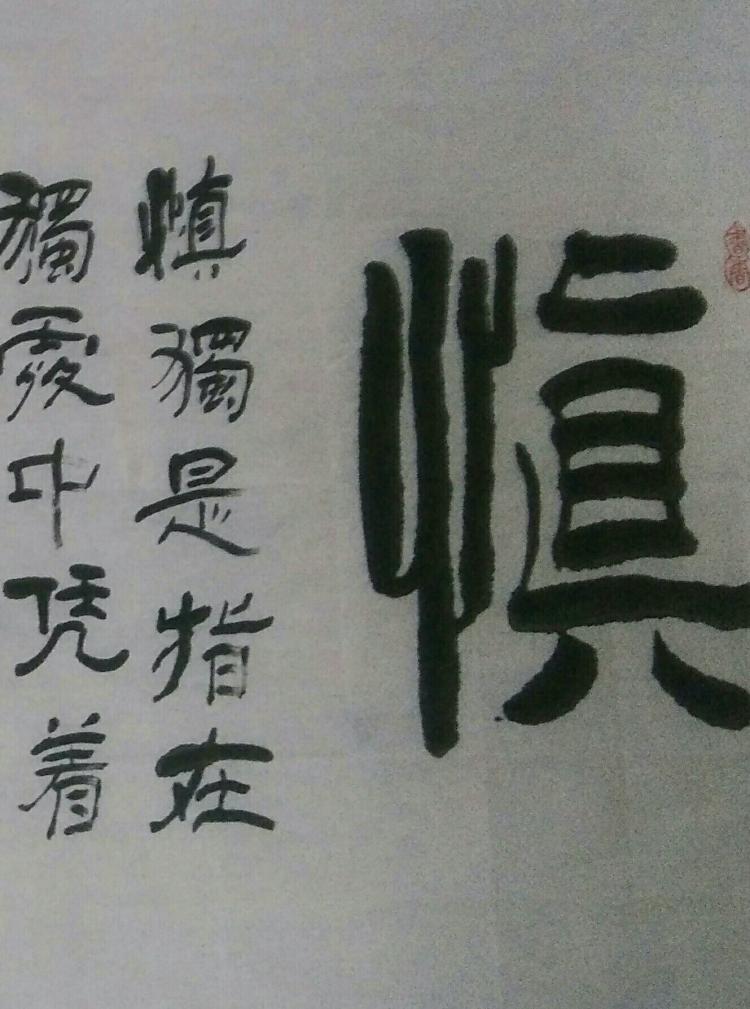 慎
慎獨是指在
獨處中凭着